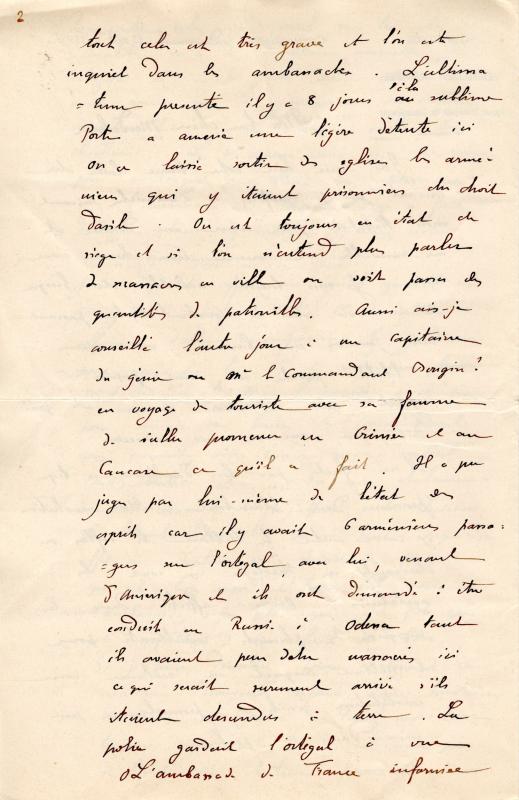 2
tout cela est très grave et l'on est
inquiet dans les ambassades. L'ultima
=tum presenté il y a 8 jours à la sublime
Porte a amené une légère détente ici
on a laissé sortir des eglises les armé-
niens qui y étaient prisonniers du droit
d'asile. On est toujours en état de
siege et si l'on n'entend plus parler
de massacres en ville on voit passer des
quantités de patrouilles. Aussi ais-je
conseillé l'autre jour à un capitaine
du génie ou le Commandant ?
en voyage de touriste avec sa femme
de s'aller promener en Crimée et au
Caucase ce qu'il a fait. Il a pu
juger par lui-même de l'état des
esprits car il y avait 6 arméniens passa=
=gers sur l'ortégal avec lui, venant
et ils ont demandé à être
conduit en Russie à Odessa tant
ils avaient peur d'être massacrés ici
ce qui serait surement arrivé s'ils
étaient descendus à terre. La
police gardait l'ortégal à vue
L'ambassade de France informée